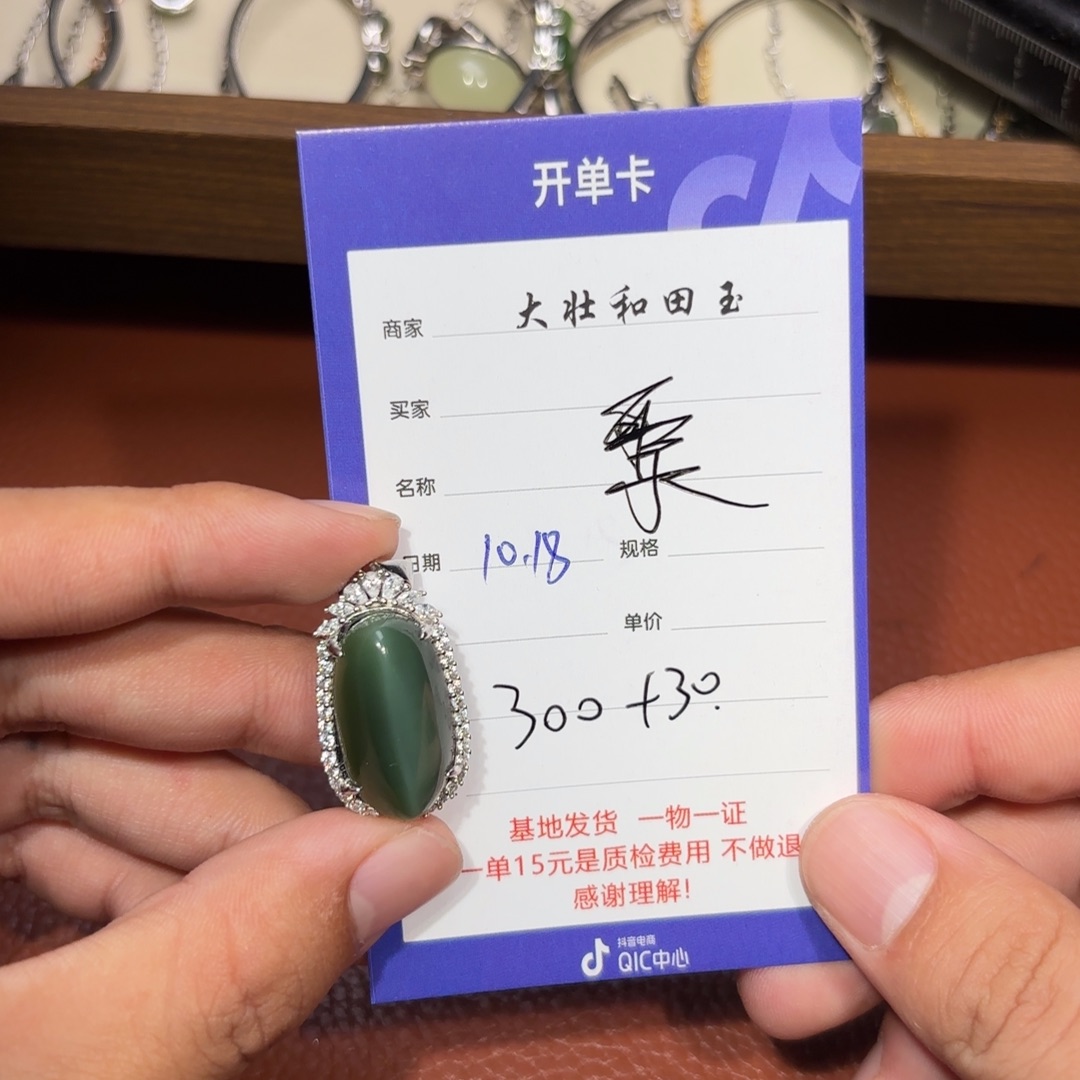 开单卡
商家 大壮和田玉
买家
名称
日期 10.18 规格
单价
300+30.
基地发货 一物一证
一单15元是质检费用 不做退
感谢理解!
抖音电商
QIC中心